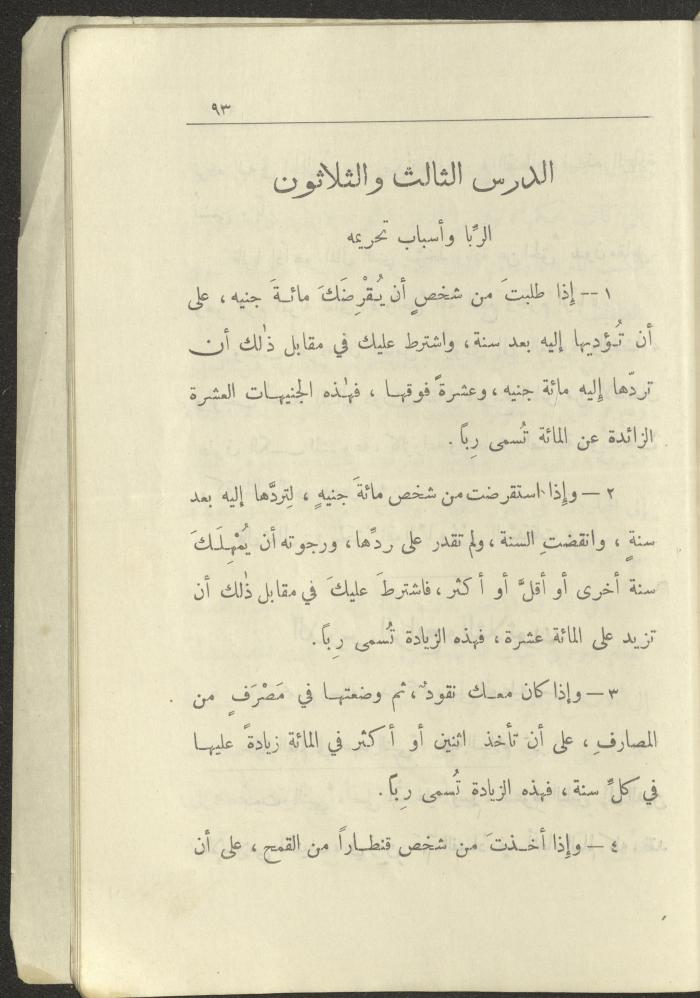 ٩٣
الدرس الثالث والثلاثون
الرِّبا وأسباب تحريمه
١ -- إِذا طلبتَ من شخصٍ أن يُقْرِضَكَ مائةَ جنيه ، على
أن تُؤديها إليه بعد سنة، واشترط عليك في مقابل ذٰلك أن
تردّها إِليه مائة جنيه ، وعشرةً فوقها ، فهٰذه الجنيهات العشرة
الزائدة عن المائة تُسمى رِباً .
٢ — وإِذا استقرضت من شخص مائةَ جنيهٍ ، لِتردَّها إليه بعد
سنةٍ ، وانقضتِ السنة ، ولم تقدر على ردِّها، ورجوته أن يُمْهِلَكَ
سنة أخرى أو أقلَّ أو أكثر ، فاشترطَ عليكَ في مقابل ذٰلك أن
تزيد على المائة عشرة ، فهذه الزيادة تُسمى رِباً.
٣ — وإذا كان معك نقودٌ ، ثم وضعتها في مَصْرَفٍ من
المصارفِ ، على أن تأخذ اثنين أو أكثر في المائة زيادةً عليها
في كلِّ سنة ، فهذه الزيادة تُسمى رِباً .
٤ — وإِذا أخذتَ من شخص قنطاراً من القمح ، على أن